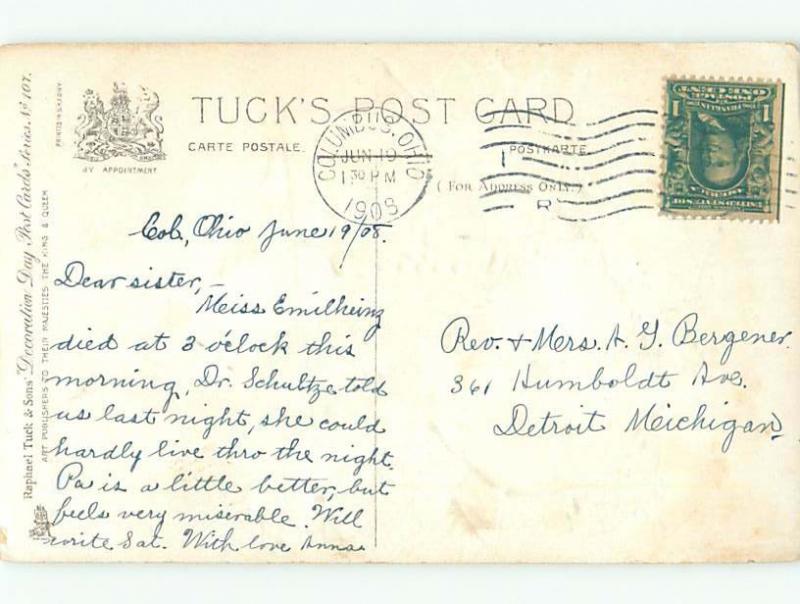 TUCK'S POST CARD
CARTE POSTALE.
POSTKARTE.
( FOR ADDRESS ONLY.)
BY APPOINTMENT
PRINTED IN SAXONY
Raphael Tuck & Sons' "Decoration Day" Post Cards" Series Nº 107.
ART PUBLISHERS TO THEIR MAJESTIES THE KING & QUEEN
COLUMBUS, OHIO
JUN 19
1 30 PM
1908
R
POSTAGE
ONE CENT
1 1
FRANKLIN
UNITED STATES OF AMERICA
Col, Ohio June 19/08.
Dear sister,—
Meiss Emilheinz
died at 3 o'clock this
morning, Dr. Schultze told
us last night, she could
hardly live thro the night.
Pa is a little better, but
feels very miserable. Will
write Sat. With love Anna
Rev. & Mers. A. G. Bergener.
361 Humboldt Ave.
Detroit Meichigan